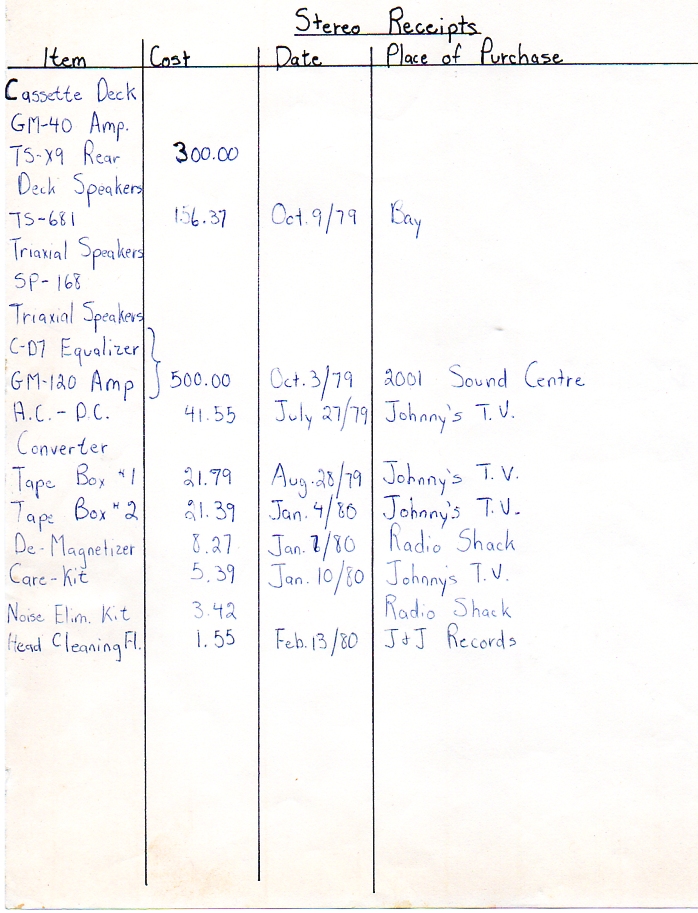 Stereo Receipts
Item Cost Date Place of Purchase
Cassette Deck
GM-40 Amp.
TS-X9 Rear 300.00
Deck Speakers
TS-681 156.37 Oct. 9/79 Bay
Triaxial Speakers
SP-168
Triaxial Speakers
C-D7 Equalizer
GM-120 Amp 500.00 Oct. 3/79 2001 Sound Centre
A.C.-D.C. 41.55 July 27/79 Johnny's T.V.
Converter
Tape Box #1 21.79 Aug. 28/79 Johnny's T.V.
Tape Box #2 21.39 Jan. 4/80 Johnny's T.V.
De-Magnetizer 8.27 Jan. /80 Radio Shack
Care-Kit 5.39 Jan. 10/80 Johnny's T.V.
Noise Elim. Kit 3.42 Radio Shack
Head Cleaning Fl. 1.55 Feb. 13/80 J+J Records